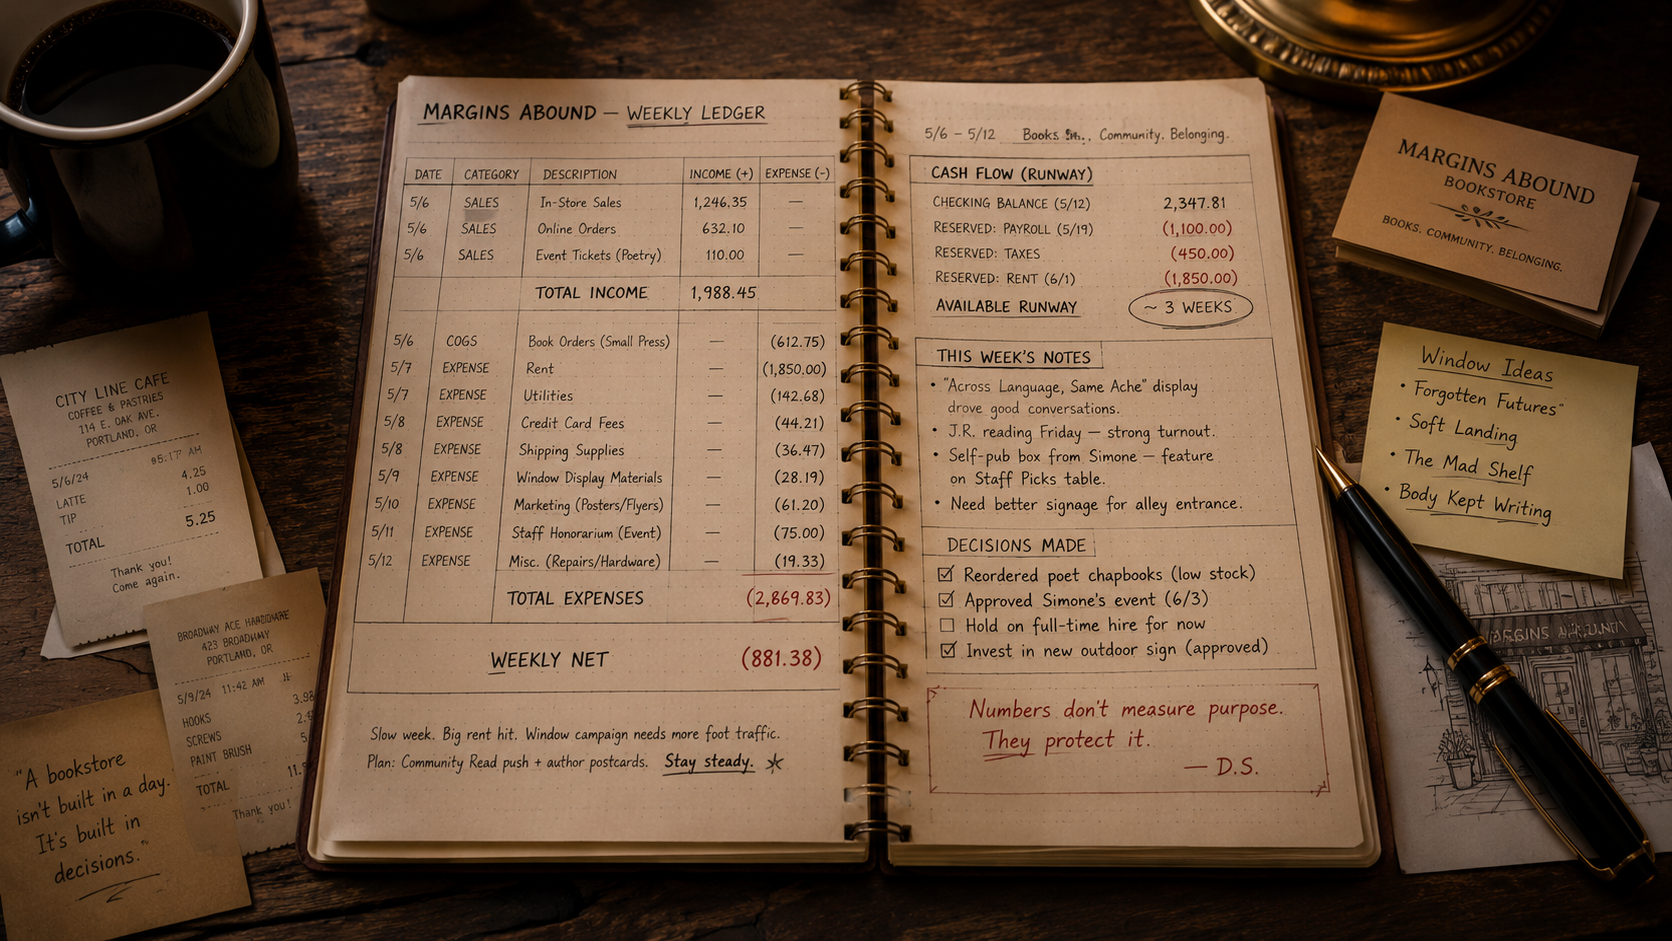 MARGINS ABOUND — WEEKLY LEDGER
DATE CATEGORY DESCRIPTION INCOME (+) EXPENSE (-)
5/6 SALES In-Store Sales 1,246.35 —
5/6 SALES Online Orders 632.10 —
5/6 SALES Event Tickets (Poetry) 110.00 —
TOTAL INCOME 1,988.45
5/6 COGS Book Orders (Small Press) — (612.75)
5/7 EXPENSE Rent — (1,850.00)
5/7 EXPENSE Utilities — (142.68)
5/8 EXPENSE Credit Card Fees — (44.21)
5/8 EXPENSE Shipping Supplies — (36.47)
5/9 EXPENSE Window Display Materials — (28.19)
5/10 EXPENSE Marketing (Posters/Flyers) — (61.20)
5/11 EXPENSE Staff Honorarium (Event) — (75.00)
5/12 EXPENSE Misc. (Repairs/Hardware) — (19.33)
TOTAL EXPENSES (2,869.83)
WEEKLY NET (881.38)
Slow week. Big rent hit. Window campaign needs more foot traffic.
Plan: Community Read push + author postcards. Stay steady.
5/6 – 5/12 Books Community. Belonging.
CASH FLOW (RUNWAY)
CHECKING BALANCE (5/12) 2,347.81
RESERVED: PAYROLL (5/19) (1,100.00)
RESERVED: TAXES (450.00)
RESERVED: RENT (6/1) (1,850.00)
AVAILABLE RUNWAY ~ 3 WEEKS
THIS WEEK'S NOTES
• "Across Language, Same Ache" display
drove good conversations.
• J.R. reading Friday — strong turnout.
• Self-pub box from Simone — feature
on Staff Picks table.
• Need better signage for alley entrance.
DECISIONS MADE
☑ Reordered poet chapbooks (low stock)
☑ Approved Simone's event (6/3)
☐ Hold on full-time hire for now
☑ Invest in new outdoor sign (approved)
Numbers don't measure purpose.
They protect it.
— D.S.
CITY LINE CAFE
COFFEE & PASTRIES
114 E. OAK AVE.
PORTLAND, OR
5/6/24 AM
LATTE 4.25
TIP 1.00
TOTAL 5.25
Thank you!
Come again.
BROADWAY ACE HARDWARE
423 BROADWAY
PORTLAND, OR
5/9/24 11:42 AM
HOOKS 3.98
SCREWS
PAINT BRUSH
TOTAL
Thank you!
"A bookstore
isn't built in a day.
It's built in
decisions."
MARGINS ABOUND
BOOKSTORE
BOOKS. COMMUNITY. BELONGING.
Window Ideas
• Forgotten Futures"
• Soft Landing
• The Mad Shelf
• Body Kept Writing